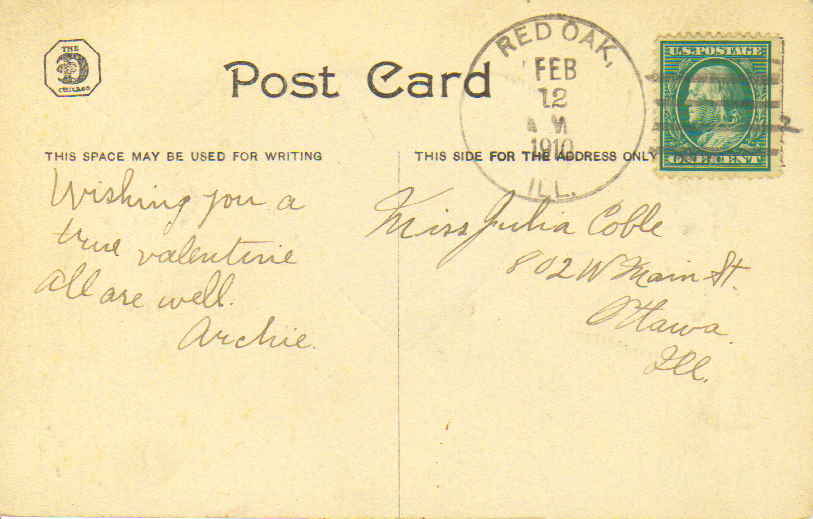 THE
CHICAGO
Post Card
RED OAK,
FEB
12
A M
1910
ILL.
U.S. POSTAGE
ONE CENT
THIS SPACE MAY BE USED FOR WRITING
THIS SIDE FOR THE ADDRESS ONLY
Wishing you a
true valentine
All are well.
Archie.
Miss Julia Coble
802 W Main St.
Ottawa
Ill.